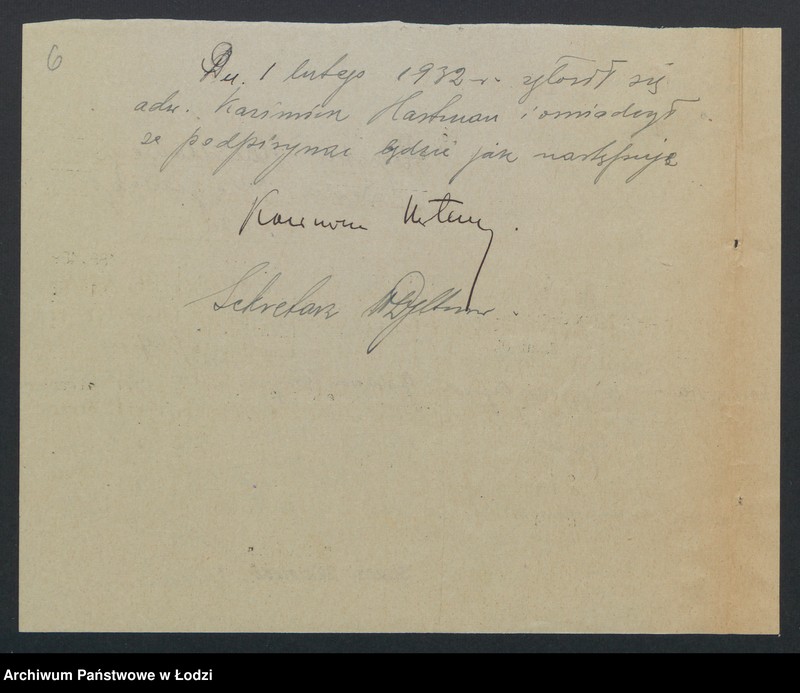 6
Dn. 1 lutego 1932 r. zgłosił się
adw. Kazimierz Hartman i oświadczył
że podpisywać będzie jak następuje
Kazimierz
Sekretarz
Archiwum Państwowe w Łodzi